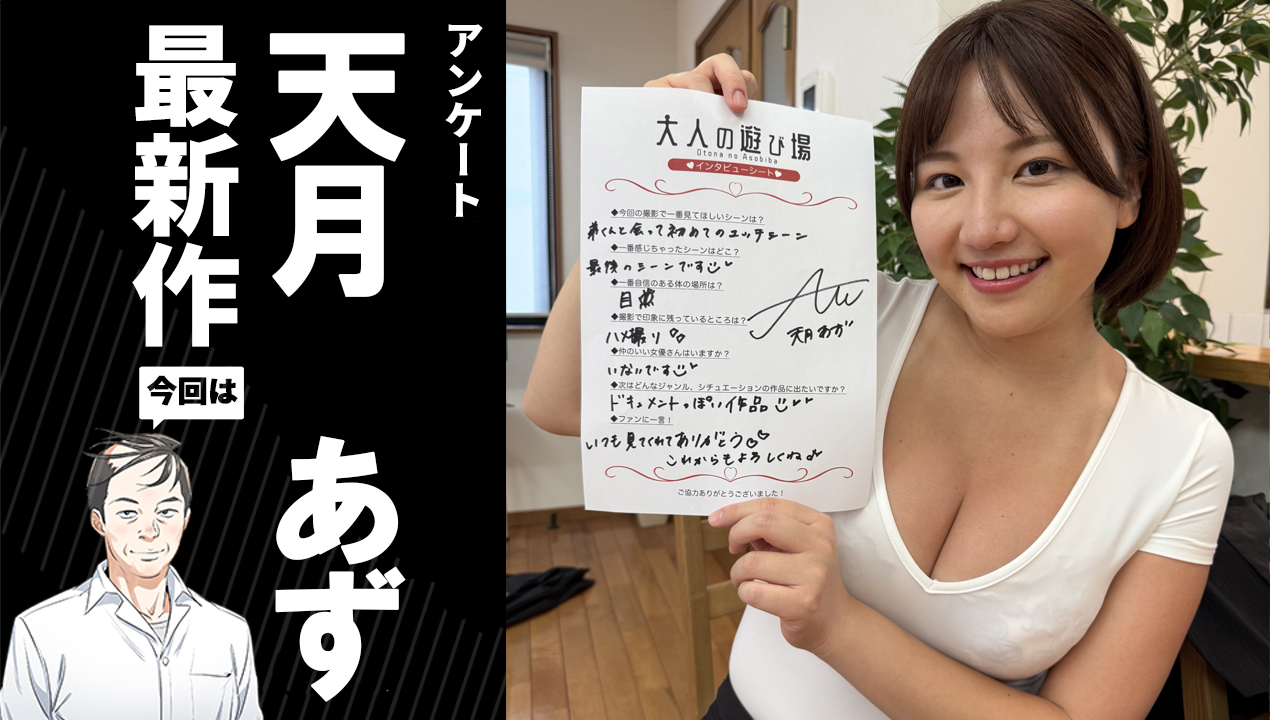 アンケート
天月 あず
最新作
今回は
大人の遊び場
Otona no Asobiba
インタビューシート
◆今回の撮影で一番見てほしいシーンは？
弟くんと会って初めてのエッチシーン
◆一番感じちゃったシーンはどこ？
最後のシーンです
◆一番自信のある体の場所は？
目
◆撮影で印象に残っているところは？
ハメ撮り
◆仲のいい女優さんはいますか？
いないです
◆次はどんなジャンル、シチュエーションの作品に出たいですか？
ドキュメントっぽい作品
◆ファンに一言！
いつも見てくれてありがとう
これからもよろしくね
天月あず
ご協力ありがとうございました！